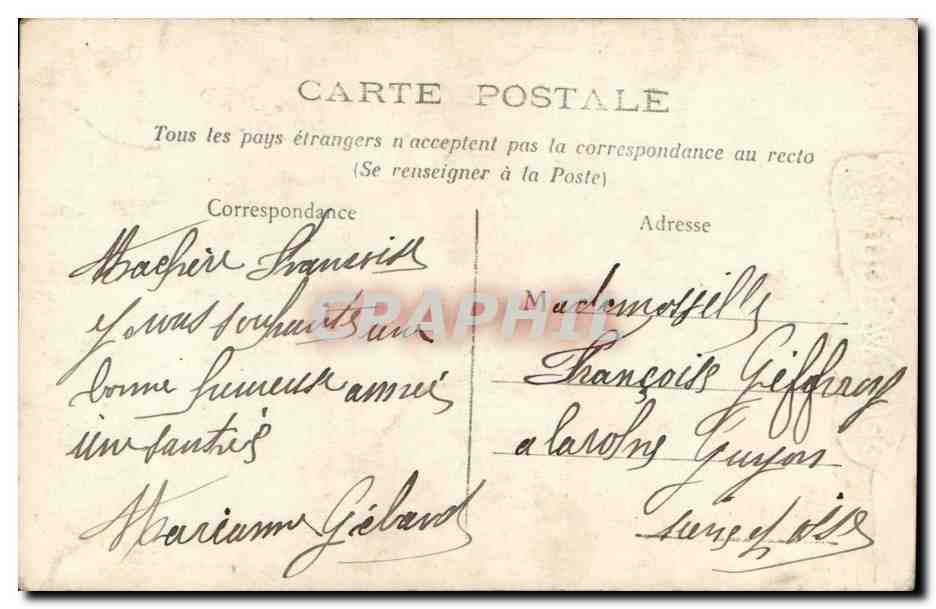 CARTE POSTALE
Tous les pays étrangers n'acceptent pas la correspondance au recto
(Se renseigner à la Poste)
Correspondance
Machère Françoise
y vous souhaits une
bonne heureuse année
une santies
Marianne Gébaud
Adresse
Mademoiselle
Françoise Géffroy
a larohe Guyon
seine et oise
GRAPHIC